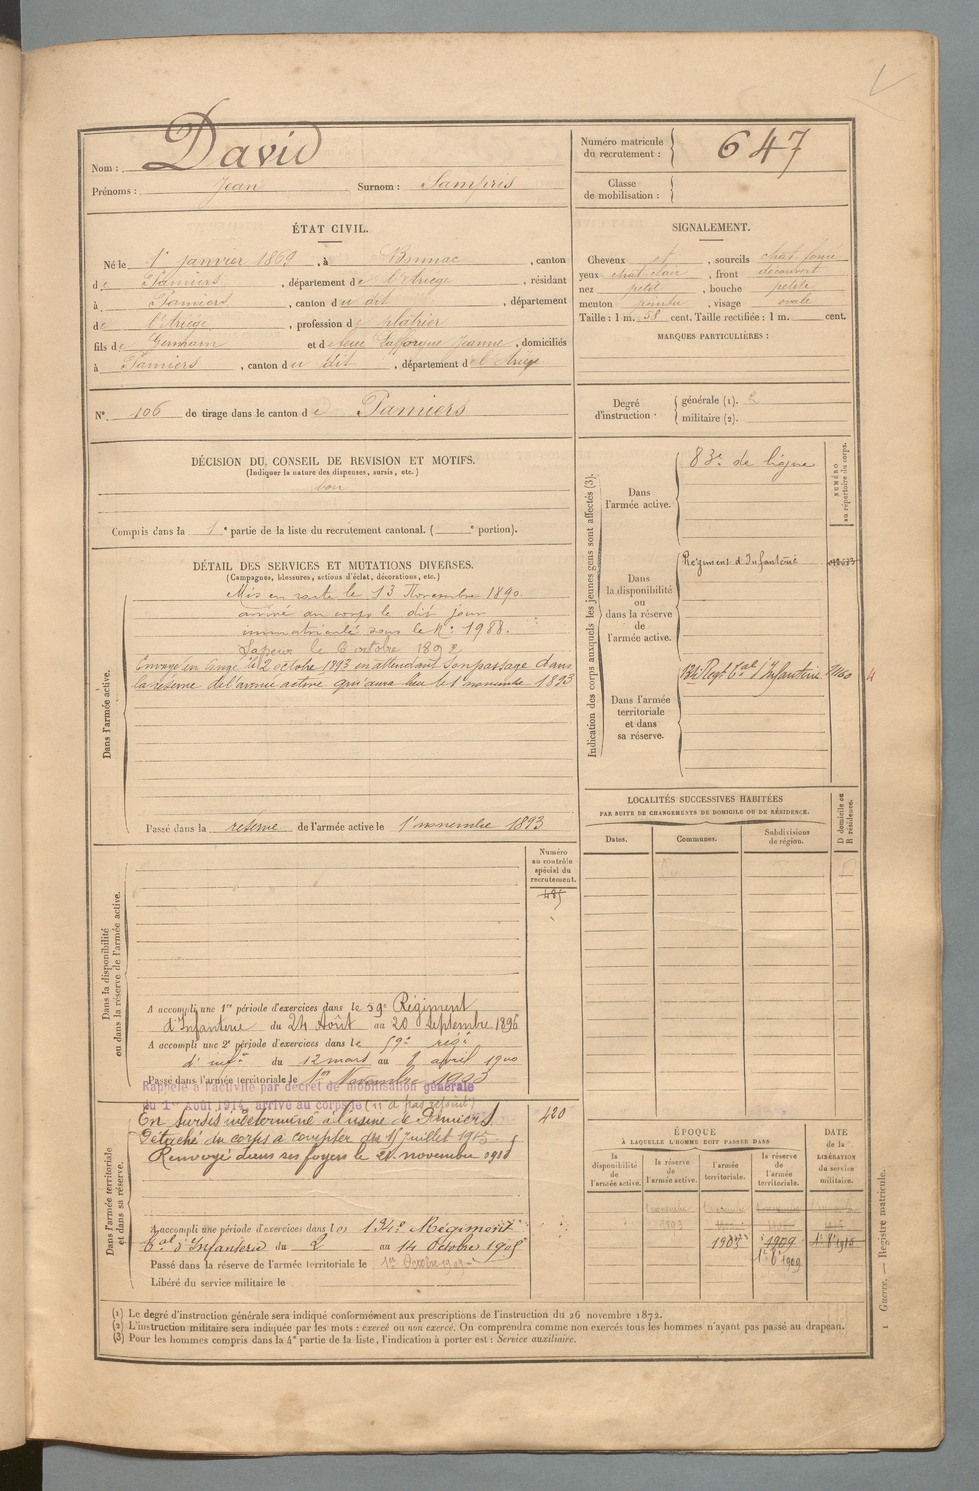 Nom : David
Prénoms : Jean Surnom : Sampris
ÉTAT CIVIL.
Né le 1er janvier 1869, à Bonnac, canton
de Pamiers, département de l'Ariège, résidant
à Pamiers, canton du dit, département
de l'Ariège, profession de plâtrier
fils de Germain et de feue Lafforgue Jeanne, domiciliés
à Pamiers, canton du dit, département de l'Ariège
N° 106 de tirage dans le canton de Pamiers
DÉCISION DU CONSEIL DE REVISION ET MOTIFS.
(Indiquer la nature des dispenses, sursis, etc.)
bon
Compris dans la 1e partie de la liste du recrutement cantonal. ( e portion).
DÉTAIL DES SERVICES ET MUTATIONS DIVERSES.
(Campagnes, blessures, actions d'éclat, décorations, etc.)
Dans l'armée active.
Mis en route le 13 Novembre 1890
arrivé au corps le dit jour
immatriculé sous le N° 1988.
Sapeur le 6 octobre 1892
Envoyé en congé le 2 octobre 1893 en attendant son passage dans
la réserve de l'armée active qui aura lieu le 1 novembre 1893
Passé dans la réserve de l'armée active le 1er novembre 1893
Numéro
au contrôle
spécial du
recrutement.
485
Dans la disponibilité
ou dans la réserve de l'armée active.
A accompli une 1re période d'exercices dans le 59e Régiment
d'Infanterie du 24 Août au 20 Septembre 1896
A accompli une 2e période d'exercices dans le 59e regt
d'infie du 12 mars au 8 avril 1900
Passé dans l'armée territoriale le 1er Novembre 1903
Rappelé à l'activité par décret de mobilisation générale
du 1er Août 1914, arrivé au corps le (n'a pas rejoint)
Dans l'armée territoriale
et dans sa réserve.
420
En sursis indéterminé à l'usine de Pamiers.
Détaché du corps à compter du 1er juillet 1915
Renvoyé dans ses foyers le 21 novembre 1918
A accompli une période d'exercices dans le 134e Régiment
tal d'Infanterie du 2 au 14 Octobre 1905
Passé dans la réserve de l'armée territoriale le 1er Octobre 1909
Libéré du service militaire le
Numéro matricule
du recrutement : 647
Classe
de mobilisation :
SIGNALEMENT.
Cheveux et, sourcils chat foncé
yeux chat clair, front découvert
nez petit, bouche petite
menton pointu, visage ovale
Taille : 1 m. 58 cent. Taille rectifiée : 1 m. cent.
MARQUES PARTICULIÈRES :
Degré
d'instruction
générale (1). 2
militaire (2).
Indication des corps auxquels les jeunes gens sont affectés (3).
NUMÉRO
au répertoire du corps.
Dans
l'armée active.
83e de ligne
Dans
la disponibilité
ou
dans la réserve
de
l'armée active.
Régiment d'Infanterie
Dans l'armée
territoriale
et dans
sa réserve.
134e Regt tal d'Infanterie
4
LOCALITÉS SUCCESSIVES HABITÉES
PAR SUITE DE CHANGEMENTS DE DOMICILE OU DE RÉSIDENCE.
Dates. Communes. Subdivisions
de région.
D domicile ou
R résidence.
ÉPOQUE
À LAQUELLE L'HOMME DOIT PASSER DANS
la
disponibilité
de
l'armée active.
la réserve
de
l'armée active.
l'armée
territoriale.
la réserve
de
l'armée
territoriale.
DATE
de la
LIBÉRATION
du service
militaire.
1 novembre
1893
1903
1909
1er 8bre 1909
(1) Le degré d'instruction générale sera indiqué conformément aux prescriptions de l'instruction du 26 novembre 1872.
(2) L'instruction militaire sera indiquée par les mots : exercé ou non exercé. On comprendra comme non exercés tous les hommes n'ayant pas passé au drapeau.
(3) Pour les hommes compris dans la 4e partie de la liste, l'indication à porter est : Service auxiliaire.
1 Guerre. — Registre matricule.